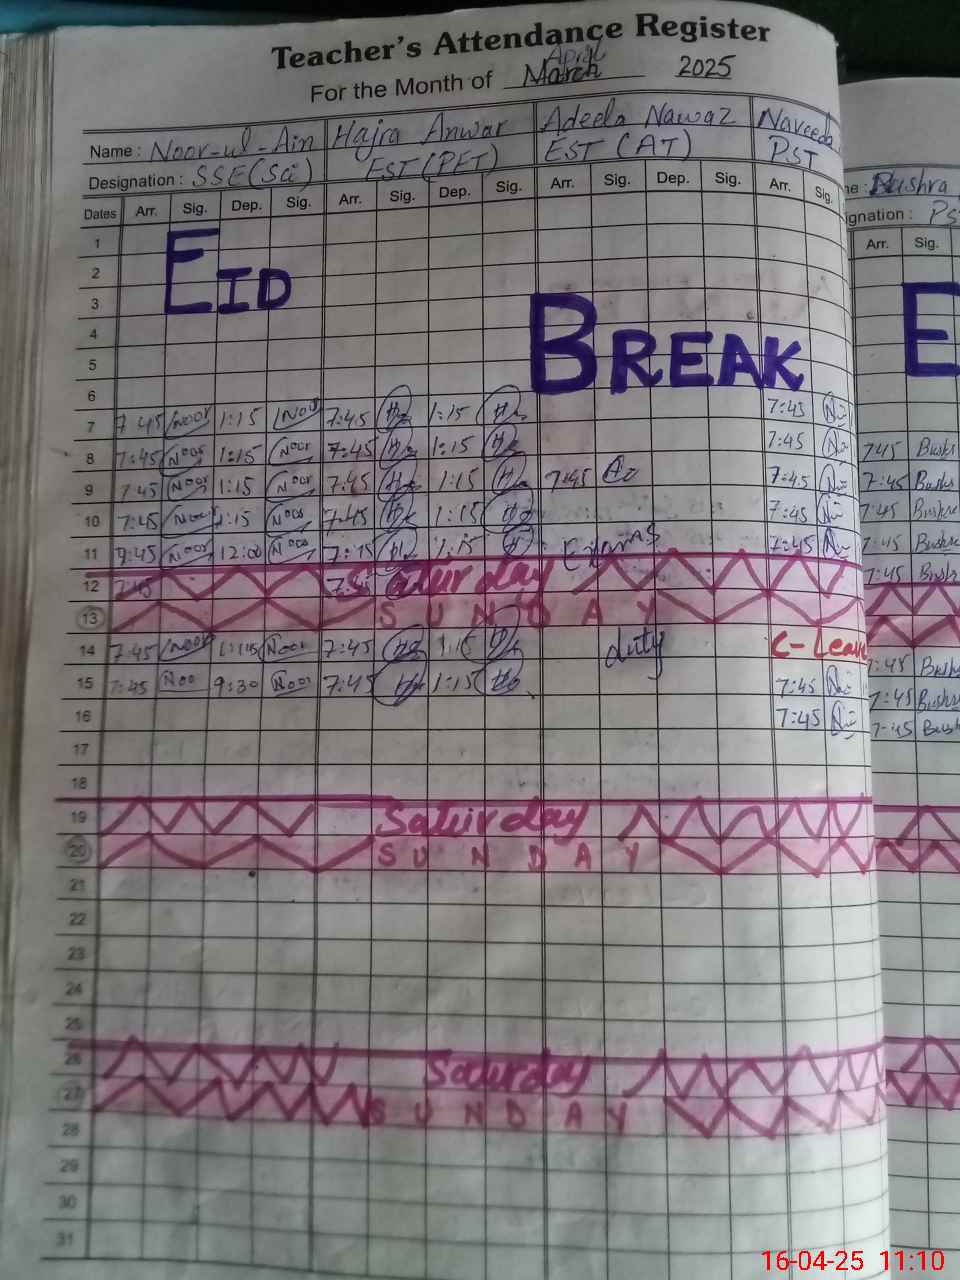 Teacher's Attendance Register
April
For the Month of March 2025
Name : Noor-ul-Ain Hajra Anwar Adeela Nawaz Naveeda
Designation : SSE(Sci) EST(PET) EST (AT) PST
Dates Arr. Sig. Dep. Sig. Arr. Sig. Dep. Sig. Arr. Sig. Dep. Sig. Arr. Sig.
me : Bushra
signation : PS
Arr. Sig.
1
2
3
EID
4
5
BREAK
E
6
7 7:45 Noor 1:15 Noor 7:45 1:15 7:45
8 7:45 Noor 1:15 Noor 7:45 1:15 7:45 7:45 Bushr
9 7:45 Noor 1:15 Noor 7:45 1:15 7:45 7:45 7:45 Bushr
10 7:45 Noor 1:15 Noor 7:45 1:15 7:45 7:45 Bushr
11 9:45 Noor 12:00 Noor 7:45 1:15 Exams 7:45 7:45 Bushr
12 7:45 7:45 Saturday 7:45 Bushr
13 SUNDAY
14 7:45 Noor 1:15 Noor 7:45 1:15 duty C-Leave 7:45 Bushr
15 7:45 Noo 9:30 Noor 7:45 1:15 7:45 7:45 Bushr
16 7:45 7:45 Bush
17
18
19 Saturday
20 SUNDAY
21
22
23
24
25
26 Saturday
27 SUNDAY
28
29
30
31
16-04-25 11:10